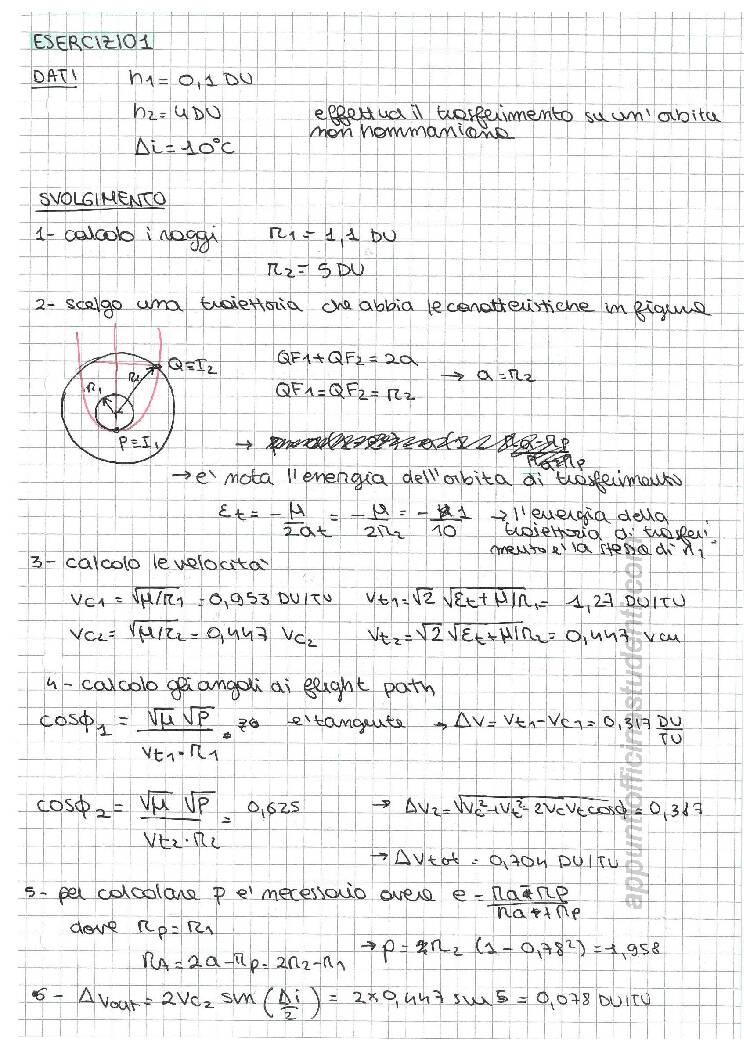 ESERCIZIO1
DATI h1 = 0,1 DU
h2 = 4DU effettua il trasferimento su un'orbita
non hommaniana
Δi = 10°C
SVOLGIMENTO
1- calcolo i raggi r1 = 1,1 DU
r2 = 5DU
2- scelgo una traiettoria che abbia le caratteristiche in figura
r1 r2 Q≡I2
P≡I1
QF1+QF2 = 2a
QF1=QF2 = r2 → a=r2
→
→ e' nota l'energia dell'orbita di trasferimento
εt = -μ/2at = -μ/2r2 = -1/10 → l'energia della
traiettoria di trasferi
mento e' la stessa di r2
3- calcolo le velocita'
Vc1 = √μ/r1 = 0,953 DU/TU Vt1 = √2 √εt+μ/r1 = 1,27 DU/TU
Vc2 = √μ/r2 = 0,447 Vc2 Vt2 = √2 √εt+μ/r2 = 0,447
4- calcolo gli angoli di flight path
cosϕ1 = √μ √p / Vt1·r1 e' tangente → ΔV = Vt1-Vc1 = 0,317 DU/TU
cosϕ2 = √μ √p / Vt2·r2 = 0,625 → ΔV2 = √Vc²+Vt²-2VcVtcosϕ = 0,387
→ ΔVtot = 0,704 DU/TU
5- per calcolare p e' necessario avere e = ra-rp/ra+rp
dove rp = r1
rA = 2a-rp = 2r2-r1 → p = r2 (1-0,78²) = 1,958
6- ΔVout = 2Vc2 sin (Δi/2) = 2x0,447 sin 5 = 0,078 DU/TU
appuntiofficinastudenti.com